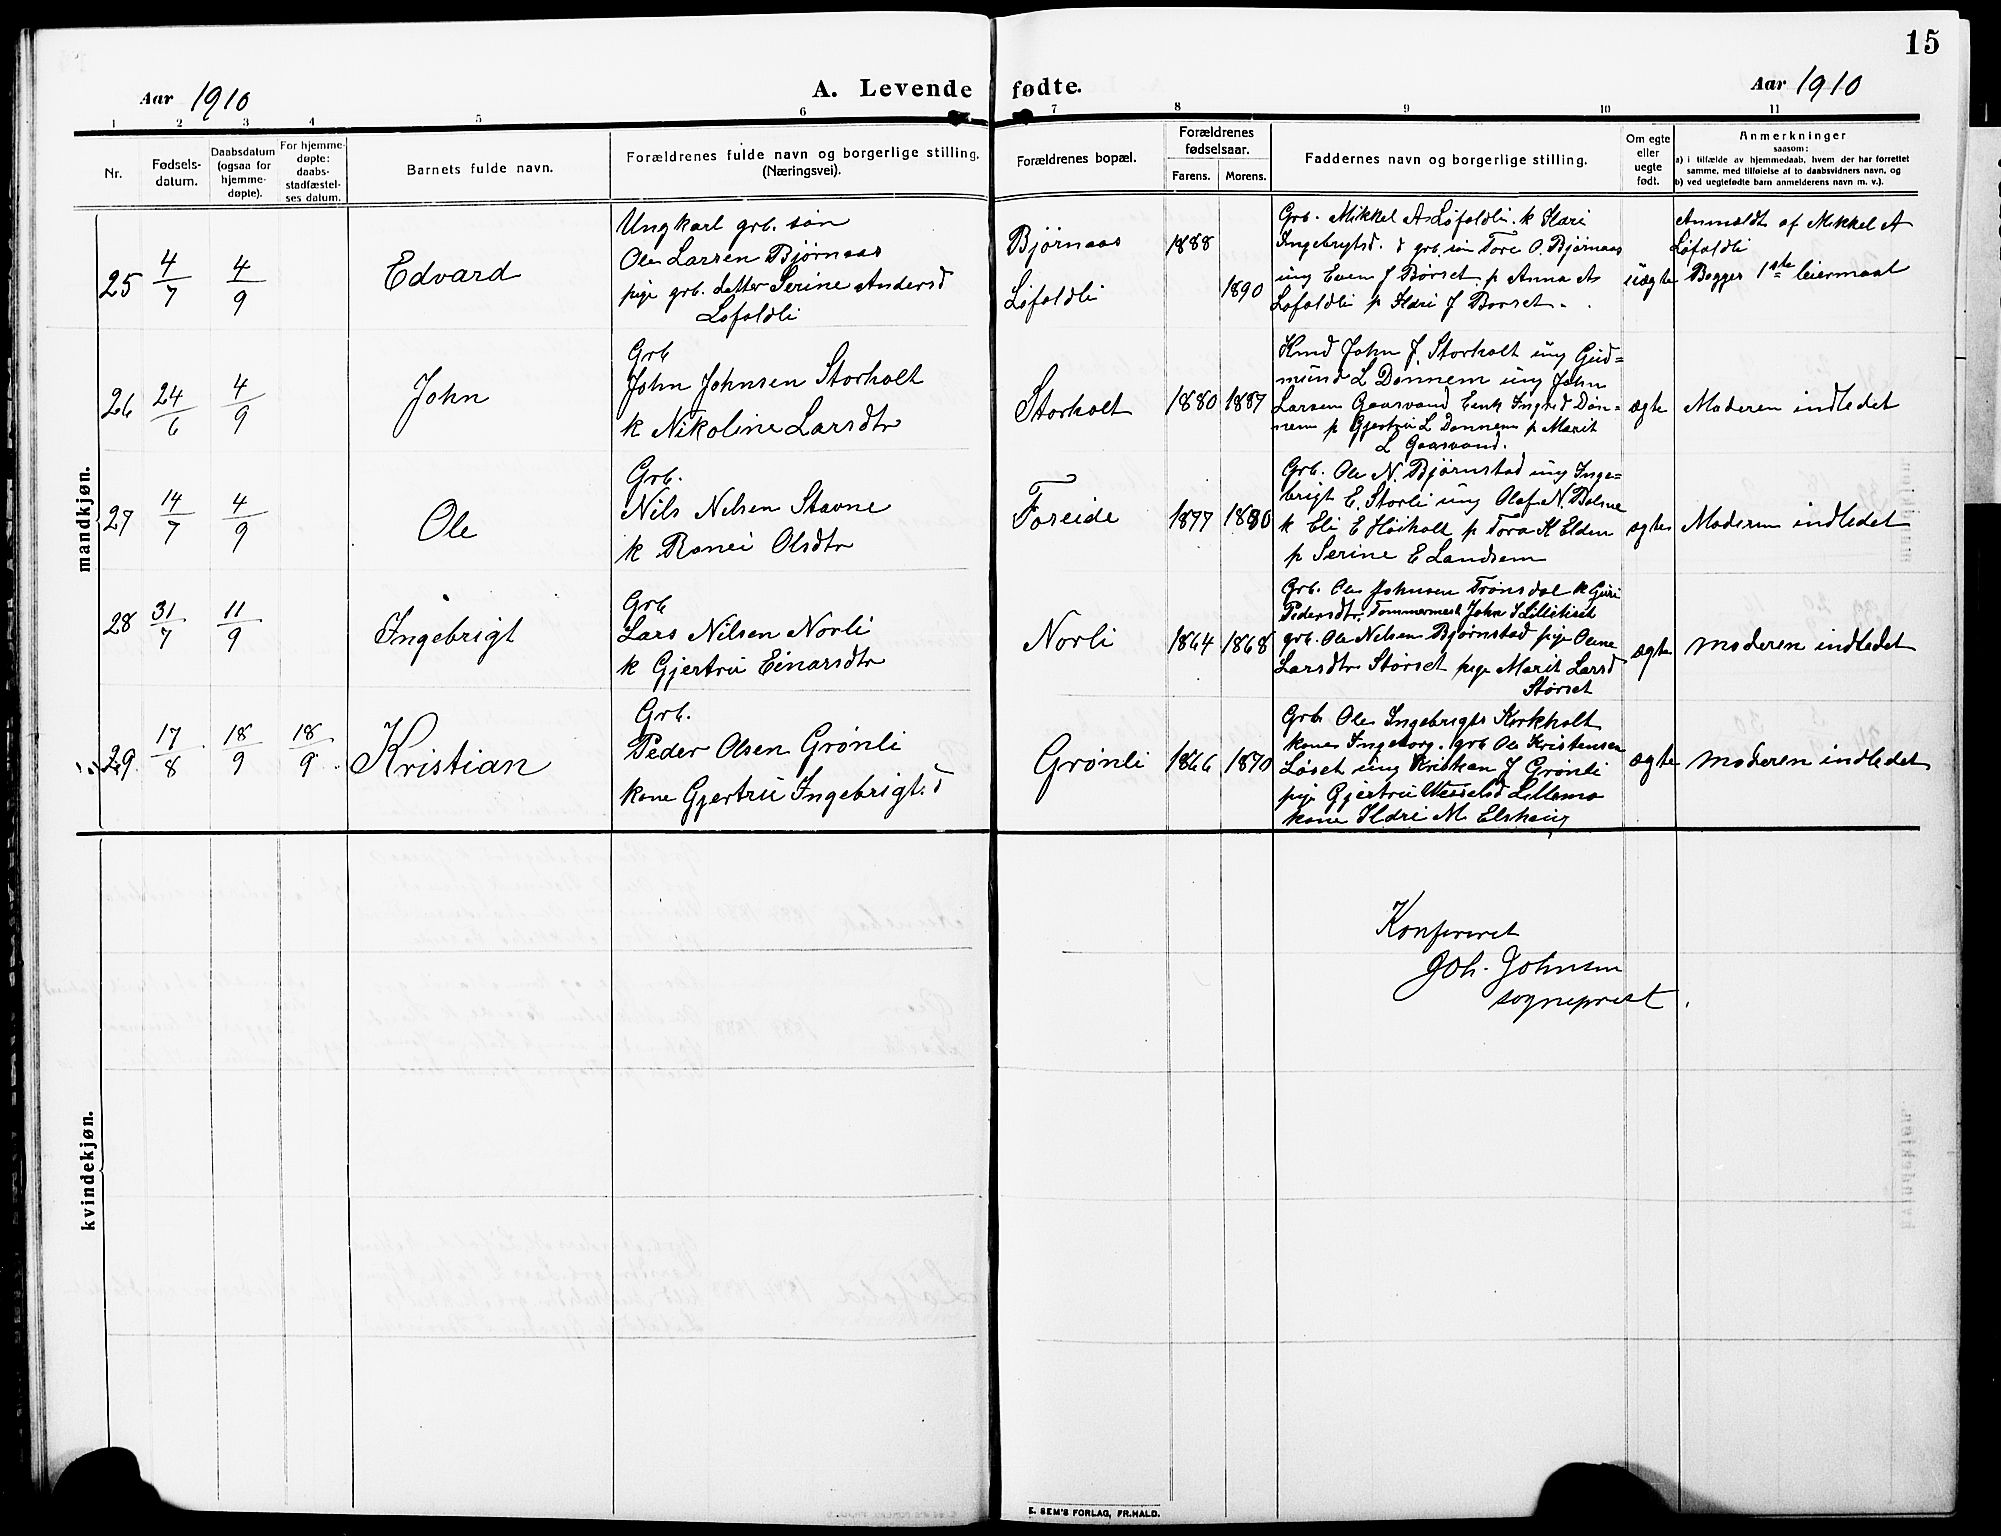 15
Aar 1910
A. Levende fødte.
Aar 1910
1 2 3 4 5 6 7 8 9 10 11
Nr.
Fødsels-
datum.
Daabsdatum
(ogsaa for
hjemme-
døpte).
For hjemme-
døpte:
daabs-
stadfæstel-
ses datum.
Barnets fulde navn.
Forældrenes fulde navn og borgerlige stilling.
(Næringsvei).
Forældrenes bopæl.
Forældrenes
fødselsaar.
Farens. Morens.
Faddernes navn og borgerlige stilling.
Om egte
eller
uegte
født.
Anmerkninger
saasom:
a) i tilfælde av hjemmedaab, hvem der har forrettet
samme, med tilføielse af to daabsvidners navn, og
b) ved uegtefødte barn anmelderens navn m. v.).
mandkjøn.
25 4/7 4/9 Edvard
Ungkarl grb. søn
Ole Larsen Bjørnaas
pige grb. datter Serine Andersd
Løfaldli
Bjørnaas 1888
Løfaldli 1890
Grb. Mikkel A Løfaldli. k Ildri
Ingebrigtsd. & grb. søn Tore O. Bjørnaas
ung Even J Børset. p Anna As
Løfaldli p Ildri J Børset.
uægte
Anmeldt af Mikkel A
Løfaldli
Begges 1ste leiermaal
26 24/6 4/9 John
Grb
John Johnsen Storholt
k Nikoline Larsdtr
Storholt 1880 1887
Kmd John J. Storholt ung Gud=
mund L Dønnem ung John
Larsen Gaasvand Enk Ingrid Døn-
nem p Gjertru L Dønnem p Marit
L Gaasvand.
ægte Moderen indledet
27 14/7 4/9 Ole
Grb.
Nils Nilsen Stavne
k Ronei Olsdtr
Foreide 1877 1880
Grb. Ole N. Bjørnstad ung Inge=
brigt E. Storli ung Olaf N. Bolme
k Eli E Høiholt p Tora K Elden
p Serine E Landsem
ægte Moderen indledet
28 31/7 11/9 Ingebrigt
Grb
Lars Nilsen Norli
k Gjertru Einarsdtr
Norli 1864 1868
Grb. Ole Johnsen Trønsdal k Guri
Pedersdtr. Tømmermest John
grb. Ole Nilsen Bjørnstad pige
Larsdtr Størset pige Marit Larsd
Størset
ægte moderen indledet
29 17/8 18/9 18/9 Kristian
Grb.
Peder Olsen Grønli
kone Gjertru Ingebrigts.d
Grønli 1866 1870
Grb Ole Ingebrigts Kirkholt
kone Ingeborg. grb Ole Kristensen
Løset ung Kristian J Grønli
pige Gjertru Wesselsd Lillemo
kone Ildri M. Elshaug
ægte moderen indledet
kvindekjøn.
Konfereret
Joh. Johnsen
sogneprest.
E. SEM'S FORLAG, FR.HALD.